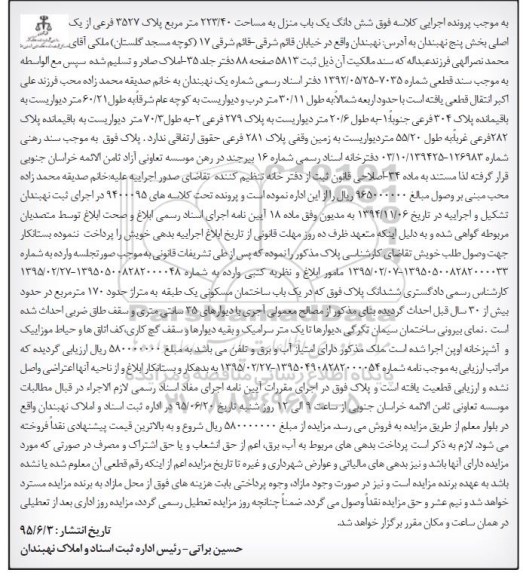 به موجب پرونده اجرایی کلاسه فوق شش دانگ یک باب منزل به مساحت ۲۲۳/۴۰ متر مربع پلاک ۳۵۲۷ فرعی از یک
اصلی بخش پنج نهبندان به آدرس: نهبندان واقع در خیابان قائم شرقی-قائم شرقی ۱۷ (کوچه مسجد گلستان) ملکی آقای
محمد نصرالهی فرزندعبداله که سند مالکیت آن ذیل ثبت ۵۸۱۳ صفحه ۸۸ دفتر جلد ۳۵-املاک صادر و تسلیم شده سپس مع الواسطه
به موجب سند قطعی شماره ۷۰۳۵-۱۳۹۲/۰۵/۲۵ دفتر اسناد رسمی شماره یک نهبندان به خانم صدیقه محمد زاده محب فرزند علی
اکبر انتقال قطعی یافته است با حدود اربعه شمالاً به طول ۳۰/۱۱ متر درب و دیواریست به کوچه عام شرقاً به طول ۶۰/۲۱ متر دیواریست به
باقیمانده پلاک ۳۰۴ فرعی جنوباً:۱-به طول ۲۰/۶ متر دیواریست به پلاک ۲۷۹ فرعی ۲-به طول ۷۰/۳ متر دیواریست به باقیمانده پلاک
۲۸۲فرعی غرباً به طول ۵۵/۲۰ متردیواریست به زمین وقفی پلاک ۲۸۱ فرعی حقوق ارتفاقی ندارد . پلاک فوق به موجب سند رهنی
شماره ۱۲۶۹۸۳-۰۳/۱۰/۱۳۹۴۲۵ دفترخانه اسناد رسمی شماره ۱۶ بیرجند در رهن موسسه تعاونی آزاد ثامن الائمه خراسان جنوبی
قرار گرفته لذا مستند به ماده ۳۴-اصلاحی قانون ثبت از دفتر خانه تنظیم کننده تقاضای صدور اجراییه علیه:خانم صدیقه محمد زاده
محب مبنی بر وصول مبالغ ۹۶۵۰۰۰۰۰۰ ریال را از این اداره نموده است و پرونده تحت کلاسه های ۹۴۰۰۰۹۵ در اجرای ثبت نهبندان
تشکیل و اجراییه در تاریخ ۱۳۹۴/۱۱/۰۶ به مدیون وفق ماده ۱۸ آیین نامه اجرای اسناد رسمی ابلاغ و صحت ابلاغ توسط متصدیان
مربوطه گواهی شده و به دلیل اینکه متعهد ظرف ده روز مهلت قانونی از تاریخ ابلاغ اجراییه بدهی خویش را پرداخت ننموده بستانکار
جهت وصول طلب خویش تقاضای کارشناسی پلاک مذکور را نموده که پس از طی تشریفات قانونی به موجب صورتجلسه وارده به شماره
۱۳۹۵۰۵۰۰۸۲۸۲۰۰۰۰۳۳-۱۳۹۵/۰۲/۰۷ مامور ابلاغ و نظریه کتبی وارده به شماره ۱۳۹۵۰۵۰۰۸۲۸۲۰۰۰۰۴۸-۱۳۹۵/۰۲/۲۷
کارشناس رسمی دادگستری ششدانگ پلاک فوق که در یک باب ساختمان مسکونی یک طبقه به متراژ حدود ۱۷۰ مترمربع در حدود
بیش از ۳۰ سال قبل احداث گردیده بنای مذکور از مصالح معمولی آجری با دیوارهای ۳۵ سانتی متری و سقف طاق ضربی احداث شده
است . نمای بیرونی ساختمان سیمان تگرگی،دیوارها تا یک متر سرامیک و بقیه دیوارها و سقف گچ کاری،کف اتاق ها و حیاط موزاییک
و آشپزخانه اوپن اجرا شده است.ملک مذکور دارای امتیاز آب و برق و تلفن می باشد.به مبلغ ۵۸۰۰۰۰۰۰۰ ریال ارزیابی گردیده که
مراتب ارزیابی به موجب نامه شماره ۱۳۹۵۰۴۹۰۸۲۸۲۰۰۰۰۵۴-۱۳۹۵/۰۲/۲۷ به بدهکار و بستانکار ابلاغ و از ناحیه آنها اعتراضی واصل
نشده و ارزیابی قطعیت یافته است و پلاک فوق در اجرای مقررات آیین نامه اجرای مفاد اسناد رسمی لازم الاجراء در قبال مطالبات
موسسه تعاونی ثامن الائمه خراسان جنوبی از ساعت ۹ الی ۱۲ روز شنبه تاریخ ۹۵/۰۶/۲۰ در اداره ثبت اسناد و املاک نهبندان واقع
در بلوار معلم از طریق مزایده به فروش می رسد. مزایده از مبلغ ۵۸۰۰۰۰۰۰۰ ریال شروع و به بالاترین قیمت پیشنهادی نقداً فروخته
می شود. لازم به ذکر است پرداخت بدهی های مربوط به آب، برق، اعم از حق انشعاب و یا حق اشتراک و مصرف در صورتی که مورد
مزایده دارای آنها باشد و نیز بدهی های مالیاتی و عوارض شهرداری و غیره تا تاریخ مزایده اعم از اینکه رقم قطعی آن معلوم شده یا نشده
باشد به عهده برنده مزایده است و نیز در صورت وجود مازاد، وجوه پرداختی بابت هزینه های فوق از محل مازاد به برنده مزایده مسترد
خواهد شد و نیم عشر و حق مزایده نقداً وصول می گردد. ضمناً چنانچه روز مزایده تعطیل رسمی گردد، مزایده روز اداری بعد از تعطیلی
در همان ساعت و مکان مقرر برگزار خواهد شد.
تاریخ انتشار : ۹۵/۶/۳
حسین براتی - رئیس اداره ثبت اسناد و املاک نهبندان